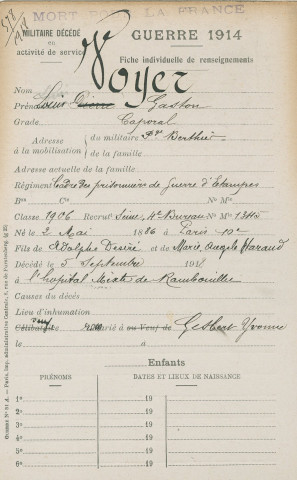 MORT POUR LA FRANCE
MILITAIRE DÉCÉDÉ
en
activité de service
GUERRE 1914
Fiche individuelle de renseignements
Voyer
Nom
Prénoms Louis Gaston
Grade Caporal
Adresse à la mobilisation { du militaire Bd Berthier
de la famille
Adresse actuelle de la famille
Régiment Cadre des prisonniers de Guerre d'Etampes
Bon Cie No Mle
Classe 1906 Recrutt Seine, 4e Bureau No Mle 1345
Né le 2 Mai 1886 à Paris
Fils de Adolphe Desiré et de Marie, Angèle Haraud
Décédé le 5 Septembre 1918
à l'hopital Mixte de Rambouillet
Causes du décès
Lieu d'inhumation
Célibataire Marié à ou Veuf de Gesbert Yvonne
le à
Enfants
PRÉNOMS DATES ET LIEUX DE NAISSANCE
1° 19
2° 19
3° 19
4° 19
5° 19
6° 19